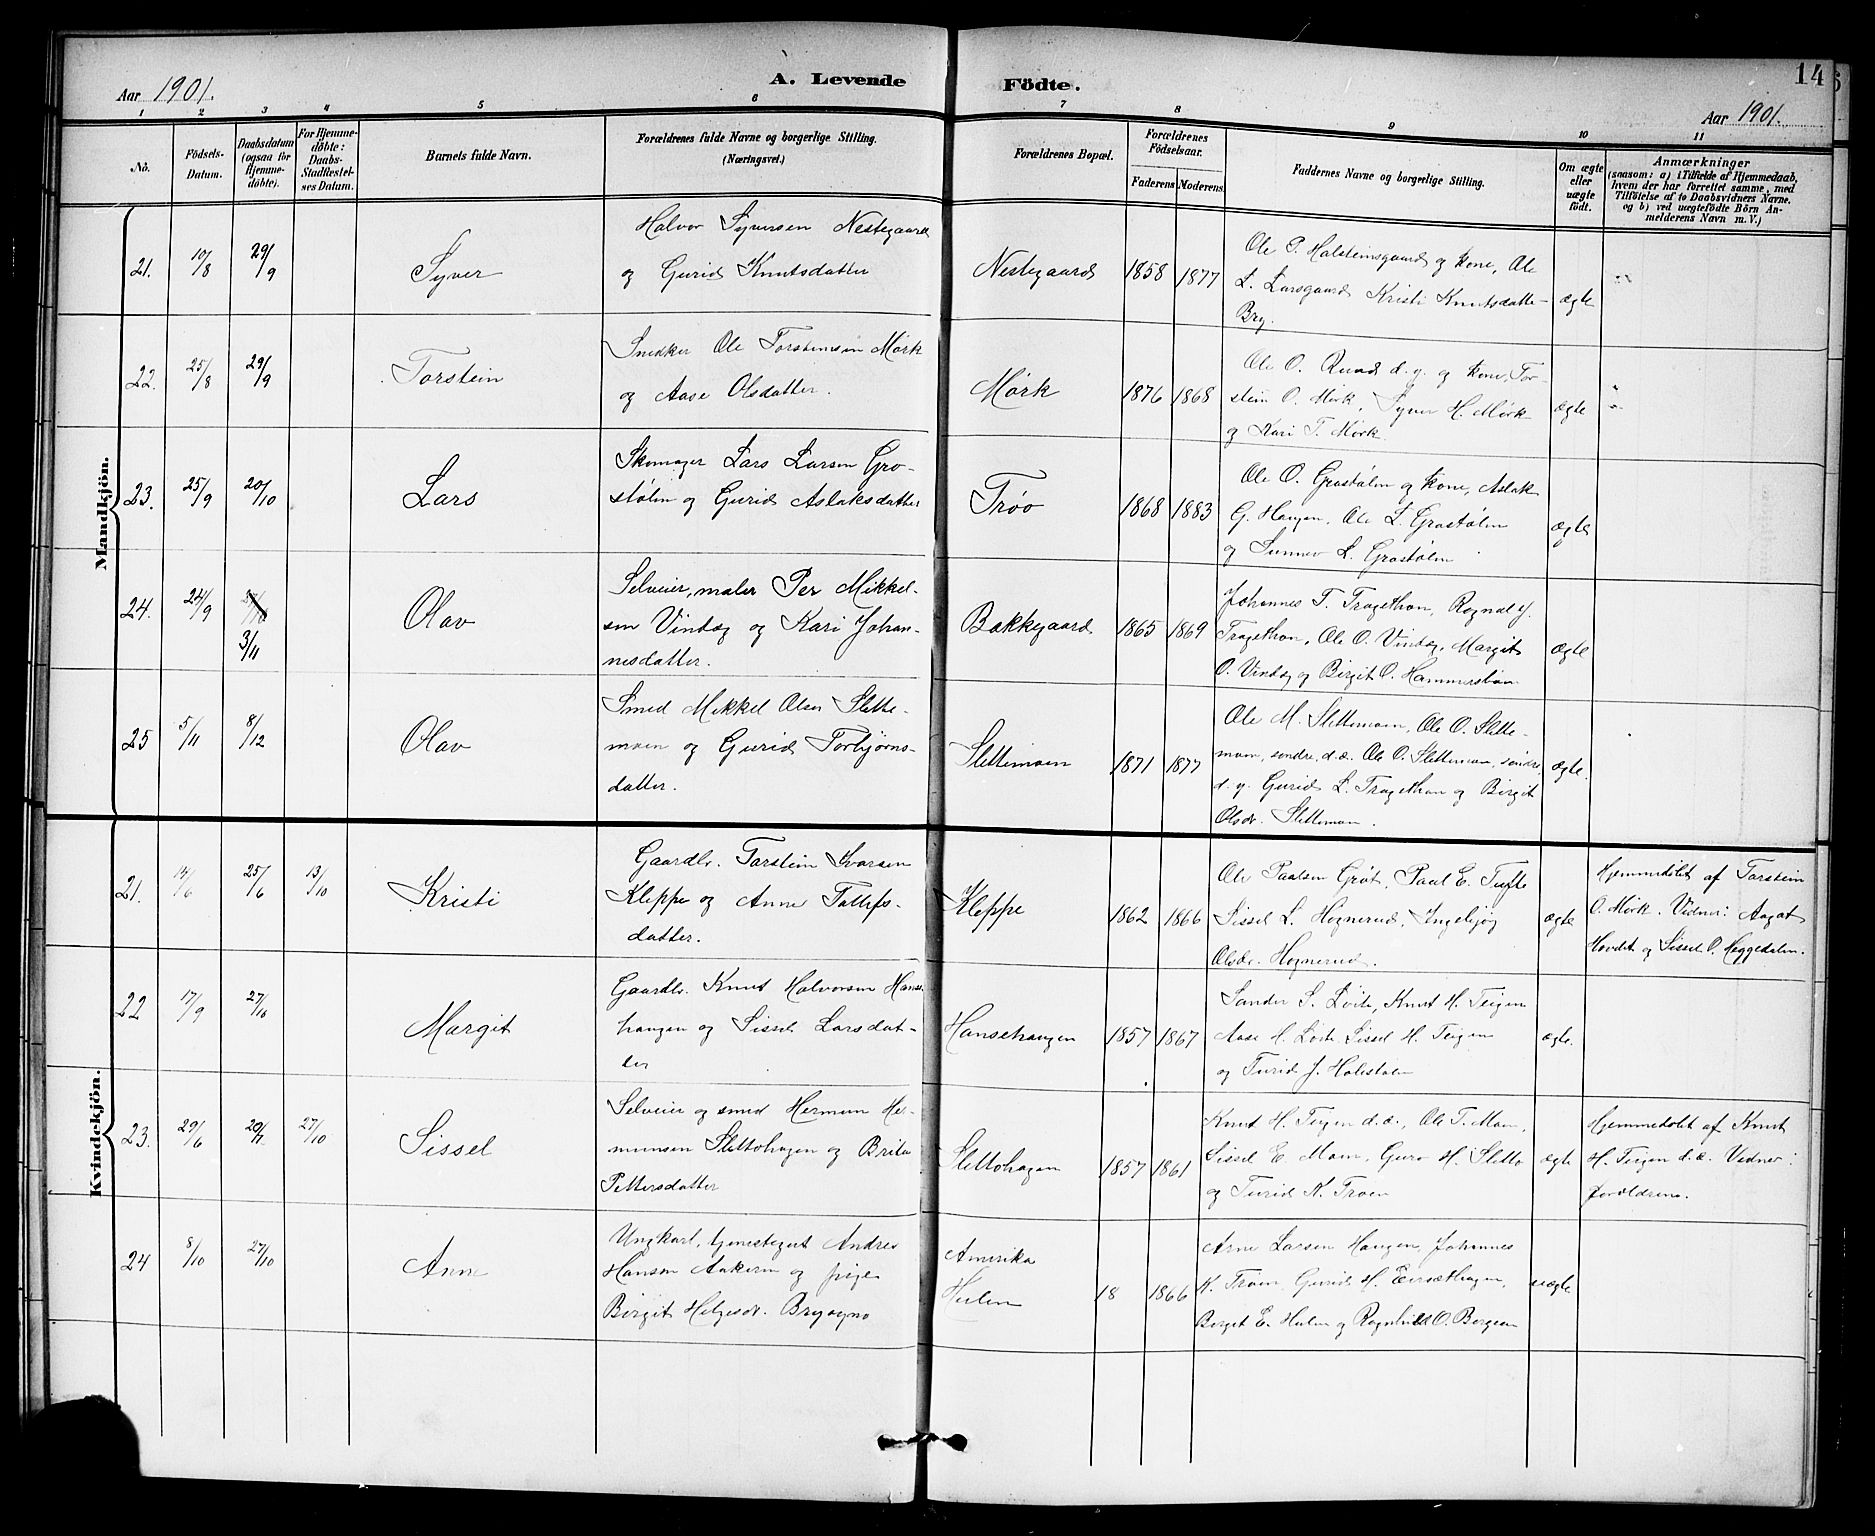 14
Aar 1901.
A. Levende Födte.
Aar 1901.
1 2 3 4 5 6 7 8 9 10 11
No.
Födsels-
Datum.
Daabsdatum
(ogsaa for
Hjemme-
döbte).
For Hjemme-
döbte:
Daabs-
Stadfæstel-
ses Datum.
Barnets fulde Navn.
Forældrenes fulde Navne og borgerlige Stilling.
(Næringsvei.)
Forældrenes Bopæl.
Forældrenes
Födselsaar.
Faderens Moderens
Faddernes Navne og borgerlige Stilling.
Om ægte
eller
uægte
födt.
Anmærkninger
(saasom: a) i Tilfælde af Hjemmedaab,
hvem der har forrettet samme, med
Tilföielse af to Daabsvidners Navne.
og b) ved uægtefödte Börn An-
melderens Navn m. V.)
Mandkjön.
21. 10/8 29/9 Syver
Halvor Syversen Nestegaard
og Gurid Knutsdatter
Nestegaard 1858 1877
Ole P. Halsteinsgaard og kone, Ole
L. Larsgaard, Kristi Knutsdatter
Bry.
ægte
22. 25/8 29/9 Torstein
Snedker Ole Torsteinsen Mørk
og Aase Olsdatter.
Mørk 1876 1868
Ole O. Ruud d.y. og kone, Tor-
stein O. Mørk, Syver H. Mørk
og Kari T. Mørk.
ægte
23. 25/9 20/10 Lars
Skomager Lars Larsen Gro-
stølen og Gurid Aslaksdatter
Trøo 1868 1883
Ole O. Grostølen og kone, Aslak
G. Haugen, Ole L. Grostølen
og Sunnev L. Grostølen
ægte
24. 24/9 27/10 3/11 Olav
Selveier, maler Per Mikkel-
sen Vindeg og Kari Johan-
nesdatter.
Bakkegaard 1865 1869
Johannes T. Tragethon, Ragnal J.
Tragethon, Ole O. Vindeg, Margit
O. Vindeg og Birgit O. Hammersbøen
ægte
25 5/11 8/12 Olav
Smed Mikkel Olsen Slette-
moen og Gurid Torbjørns-
datter.
Slettemoen 1871 1877
Ole M. Slettemoen, Ole O. Slette-
moen, søndre, d.æ. Ole O. Slettemoen, søndre,
d.y. Gurid L. Tragethon og Birgit
Olsdr. Slettemoen.
ægte.
Kvindekjön.
21. 14/6 25/6 13/10 Kristi
Gaardbr. Torstein Ivarsen
Kleppe og Anne Tollefs-
datter.
Kleppe 1862 1866
Ole Paulsen Grøt, Paul E. Tufte
Sissel L. Hognerud, Ingebjøg
Olsdr. Hognerud.
ægte
Hjemmedøbt af Torstein
O. Mørk. Vidner: Aagot
Hovdet og Sissel O. Heggedalen.
22 17/9 27/10 Margit
Gaardbr. Knut Halvorsen Hanse-
haugen og Sissel Larsdat-
ter
Hansehaugen 1857 1867
Sander S. Løite, Knut H. Teigen
Aase H. Løite, Sissel H. Teigen
og Turid J. Holestølen
ægte.
23. 29/6 20/7. 27/10 Sissel
Selveier og smed Herman Her-
mansen Slettohagen og Brita
Pettersdatter
Slettohagen 1857 1861
Knut H. Teigen d.æ., Ole T. Moen,
Sissel E. Moen, Guro H. Sletto
og Turid K. Trøen
ægte
Hjemmedøbt af Knut
H. Teigen d.æ. Vidner:
forældrene.
24 8/10 27/10 Anne
Ungkarl, tjenestegut Andres
Hansen Aakeren og pige
Birgit Helgesdr. Bryøgno
Amerika
Heslen 18 1866
Arne Larsen Haugen, Johannes
K. Trøen, Gurid H. Eirsæthagen,
Birgit E. Heslen og Ragnhild O. Bergem
uægte